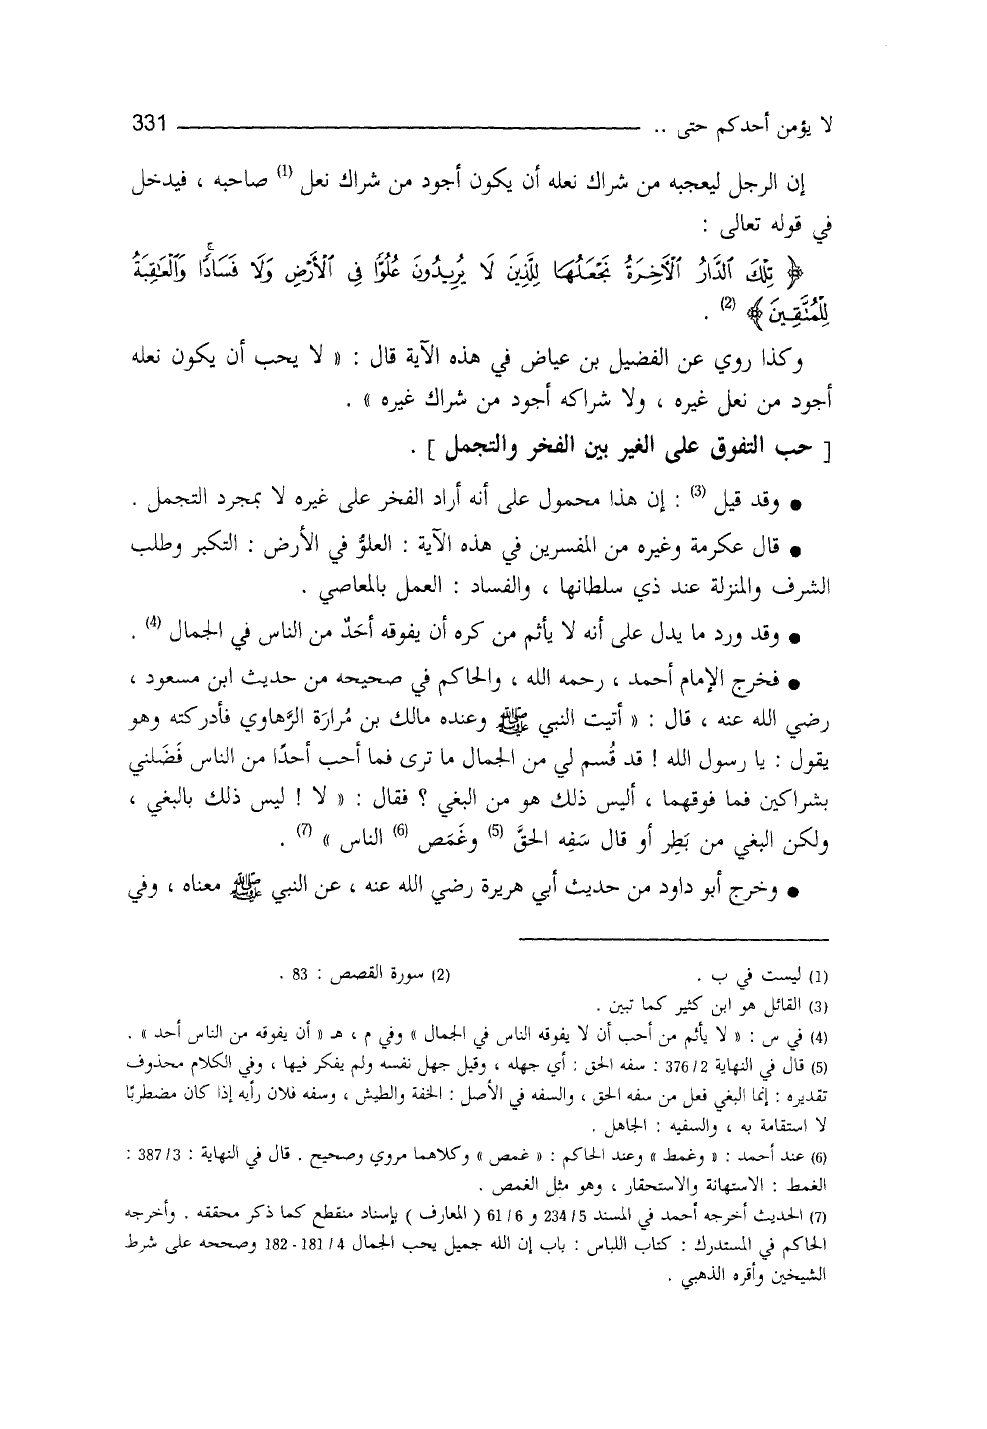 لا يؤمن أحدكم حتى .. 331
إن الرجل ليعجبه من شراك نعله أن يكون أجود من شراك نعل (1) صاحبه ، فيدخل
في قوله تعالى :
﴿ تِلْكَ ٱلدَّارُ ٱلْآخِرَةُ نَجْعَلُهَا لِلَّذِينَ لَا يُرِيدُونَ عُلُوًّا فِى ٱلْأَرْضِ وَلَا فَسَادًا ۚ وَٱلْعَٰقِبَةُ
لِلْمُتَّقِينَ ﴾ (2) .
وكذا روي عن الفضيل بن عياض في هذه الآية قال : « لا يحب أن يكون نعله
أجود من نعل غيره ، ولا شراكه أجود من شراك غيره » .
[ حب التفوق على الغير بين الفخر والتجمل ] .
● وقد قيل (3) : إن هذا محمول على أنه أراد الفخر على غيره لا بمجرد التجمل .
● قال عكرمة وغيره من المفسرين في هذه الآية : العلوُّ في الأرض : التكبر وطلب
الشرف والمنزلة عند ذي سلطانها ، والفساد : العمل بالمعاصي .
● وقد ورد ما يدل على أنه لا يأثم من كره أن يفوقه أحَدٌ من الناس في الجمال (4) .
● فخرج الإمام أحمد ، رحمه الله ، والحاكم في صحيحه من حديث ابن مسعود ،
رضي الله عنه ، قال : « أتيت النبي ﷺ وعنده مالك بن مُرارَة الرَّهاوي فأدركته وهو
يقول : يا رسول الله ! قد قُسم لي من الجمال ما ترى فما أحب أحدًا من الناس فَضَلني
بشراكين فما فوقهما ، أليس ذلك هو من البغي ؟ فقال : « لا ! ليس ذلك بالبغي ،
ولكن البغي من بَطِر أو قال سَفِه الحقَّ (5) وغَمَص (6) الناس » (7) .
● وخرج أبو داود من حديث أبي هريرة رضي الله عنه ، عن النبي ﷺ معناه ، وفي
(1) ليست في ب . (2) سورة القصص : 83 .
(3) القائل هو ابن كثير كما تبين .
(4) في س : « لا يأثم من أحب أن لا يفوقه الناس في الجمال » وفي م ، هـ « أن يفوقه من الناس أحد » .
(5) قال في النهاية 376/2 : سفه الحق : أي جهله ، وقيل جهل نفسه ولم يفكر فيها ، وفي الكلام محذوف
تقديره : إنما البغي فعل من سفه الحق ، والسفه في الأصل : الخفة والطيش ، وسفه فلان رأيه إذا كان مضطربًا
لا استقامة به ، والسفيه : الجاهل .
(6) عند أحمد : « وغمط » وعند الحاكم : « غمص » وكلاهما مروي وصحيح . قال في النهاية : 387/3 :
الغمط : الاستهانة والاستحقار ، وهو مثل الغمص .
(7) الحديث أخرجه أحمد في المسند 234/5 و 61/6 ( المعارف ) بإسناد منقطع كما ذكر محققه . وأخرجه
الحاكم في المستدرك : كتاب اللباس : باب إن الله جميل يحب الجمال 181/4 - 182 وصححه على شرط
الشيخين وأقره الذهبي .